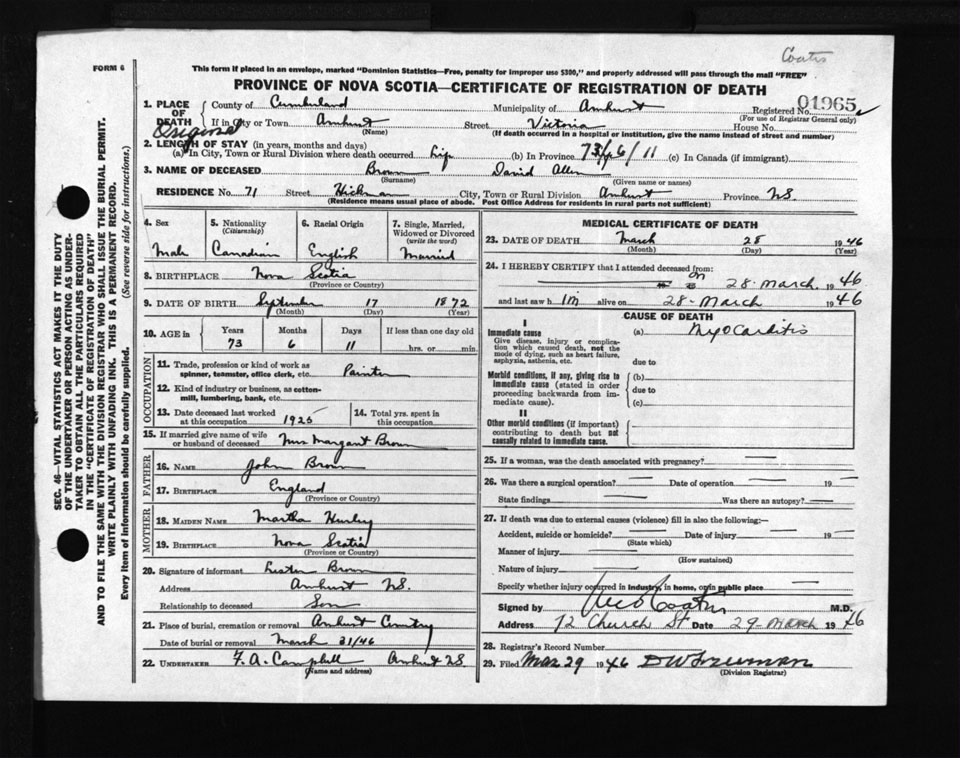 Coates
FORM 6
This form if placed in an envelope, marked "Dominion Statistics—Free, penalty for improper use $300," and properly addressed will pass through the mail "FREE"
PROVINCE OF NOVA SCOTIA—CERTIFICATE OF REGISTRATION OF DEATH
1. PLACE OF DEATH
County of Cumberland Municipality of Amherst Registered No. 01965
(For use of Registrar General only)
If in City or Town Amherst Street Victoria House No.
(Name) (If death occurred in a hospital or institution, give the name instead of street and number)
Original
2. LENGTH OF STAY (in years, months and days)
(a) In City, Town or Rural Division where death occurred Life (b) In Province 73/6/11 (c) In Canada (if immigrant)
3. NAME OF DECEASED Brown David Allen
(Surname) (Given name or names)
RESIDENCE No. 71 Street Hickman City, Town or Rural Division Amherst Province NS.
(Residence means usual place of abode. Post Office Address for residents in rural parts not sufficient)
4. Sex
Male
5. Nationality
(Citizenship)
Canadian
6. Racial Origin
English
7. Single, Married, Widowed or Divorced
(write the word)
Married
8. BIRTHPLACE Nova Scotia
(Province or Country)
9. DATE OF BIRTH September 17 1872
(Month) (Day) (Year)
10. AGE in
Years Months Days If less than one day old
73 6 11 hrs. or min.
OCCUPATION
11. Trade, profession or kind of work as
spinner, teamster, office clerk, etc. Painter
12. Kind of industry or business, as cotton-
mill, lumbering, bank, etc.
13. Date deceased last worked
at this occupation 1925
14. Total yrs. spent in
this occupation
15. If married give name of wife
or husband of deceased Mrs Margaret Brown
FATHER
16. NAME John Brown
17. BIRTHPLACE England
(Province or Country)
MOTHER
18. MAIDEN NAME Martha Hurley
19. BIRTHPLACE Nova Scotia
(Province or Country)
20. Signature of informant Lester Brown
Address Amherst NS.
Relationship to deceased Son
21. Place of burial, cremation or removal Amherst Cemetery
Date of burial or removal March 31/46
22. UNDERTAKER F. A. Campbell Amherst NS.
(Name and address)
MEDICAL CERTIFICATE OF DEATH
23. DATE OF DEATH March 28 1946
(Month) (Day) (Year)
24. I HEREBY CERTIFY that I attended deceased from:
on 28-March. 1946
and last saw him alive on 28-March 1946
CAUSE OF DEATH
I
Immediate cause (a) Myocarditis
Give disease, injury or complica-
tion which caused death, not the
mode of dying, such as heart failure,
asphyxia, asthenia, etc. due to
Morbid conditions, if any, giving rise to (b)
immediate cause (stated in order due to
proceeding backwards from im-
mediate cause). (c)
II
Other morbid conditions (if important)
contributing to death but not
causally related to immediate cause.
25. If a woman, was the death associated with pregnancy?
26. Was there a surgical operation? Date of operation 19
State findings Was there an autopsy?
27. If death was due to external causes (violence) fill in also the following:—
Accident, suicide or homicide? Date of injury 19
(State which)
Manner of injury
(How sustained)
Nature of injury
Specify whether injury occurred in industry, in home, or in public place
Signed by Coates M.D.
Address 12 Church St Date 29-March 1946
28. Registrar's Record Number
29. Filed Mar 29 1946 DW Freeman
(Division Registrar)
SEC. 46—VITAL STATISTICS ACT MAKES IT THE DUTY
OF THE UNDERTAKER OR PERSON ACTING AS UNDER-
TAKER TO OBTAIN ALL THE PARTICULARS REQUIRED
IN THE "CERTIFICATE OF REGISTRATION OF DEATH"
AND TO FILE THE SAME WITH THE DIVISION REGISTRAR WHO SHALL ISSUE THE BURIAL PERMIT.
WRITE PLAINLY WITH UNFADING INK. THIS IS A PERMANENT RECORD.
Every item of information should be carefully supplied. (See reverse side for instructions.)